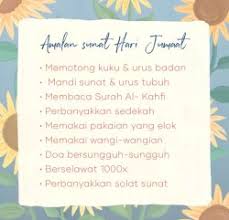 Amalan sunat Hari Jumaat
• Memotong kuku & urus badan
• Mandi sunat & urus tubuh
• Membaca Surah Al- Kahfi
• Perbanyakkan sedekah
• Memakai pakaian yang elok
• Memakai wangi-wangian
• Doa bersungguh-sungguh
• Berselawat 1000x
• Perbanyakkan solat sunat